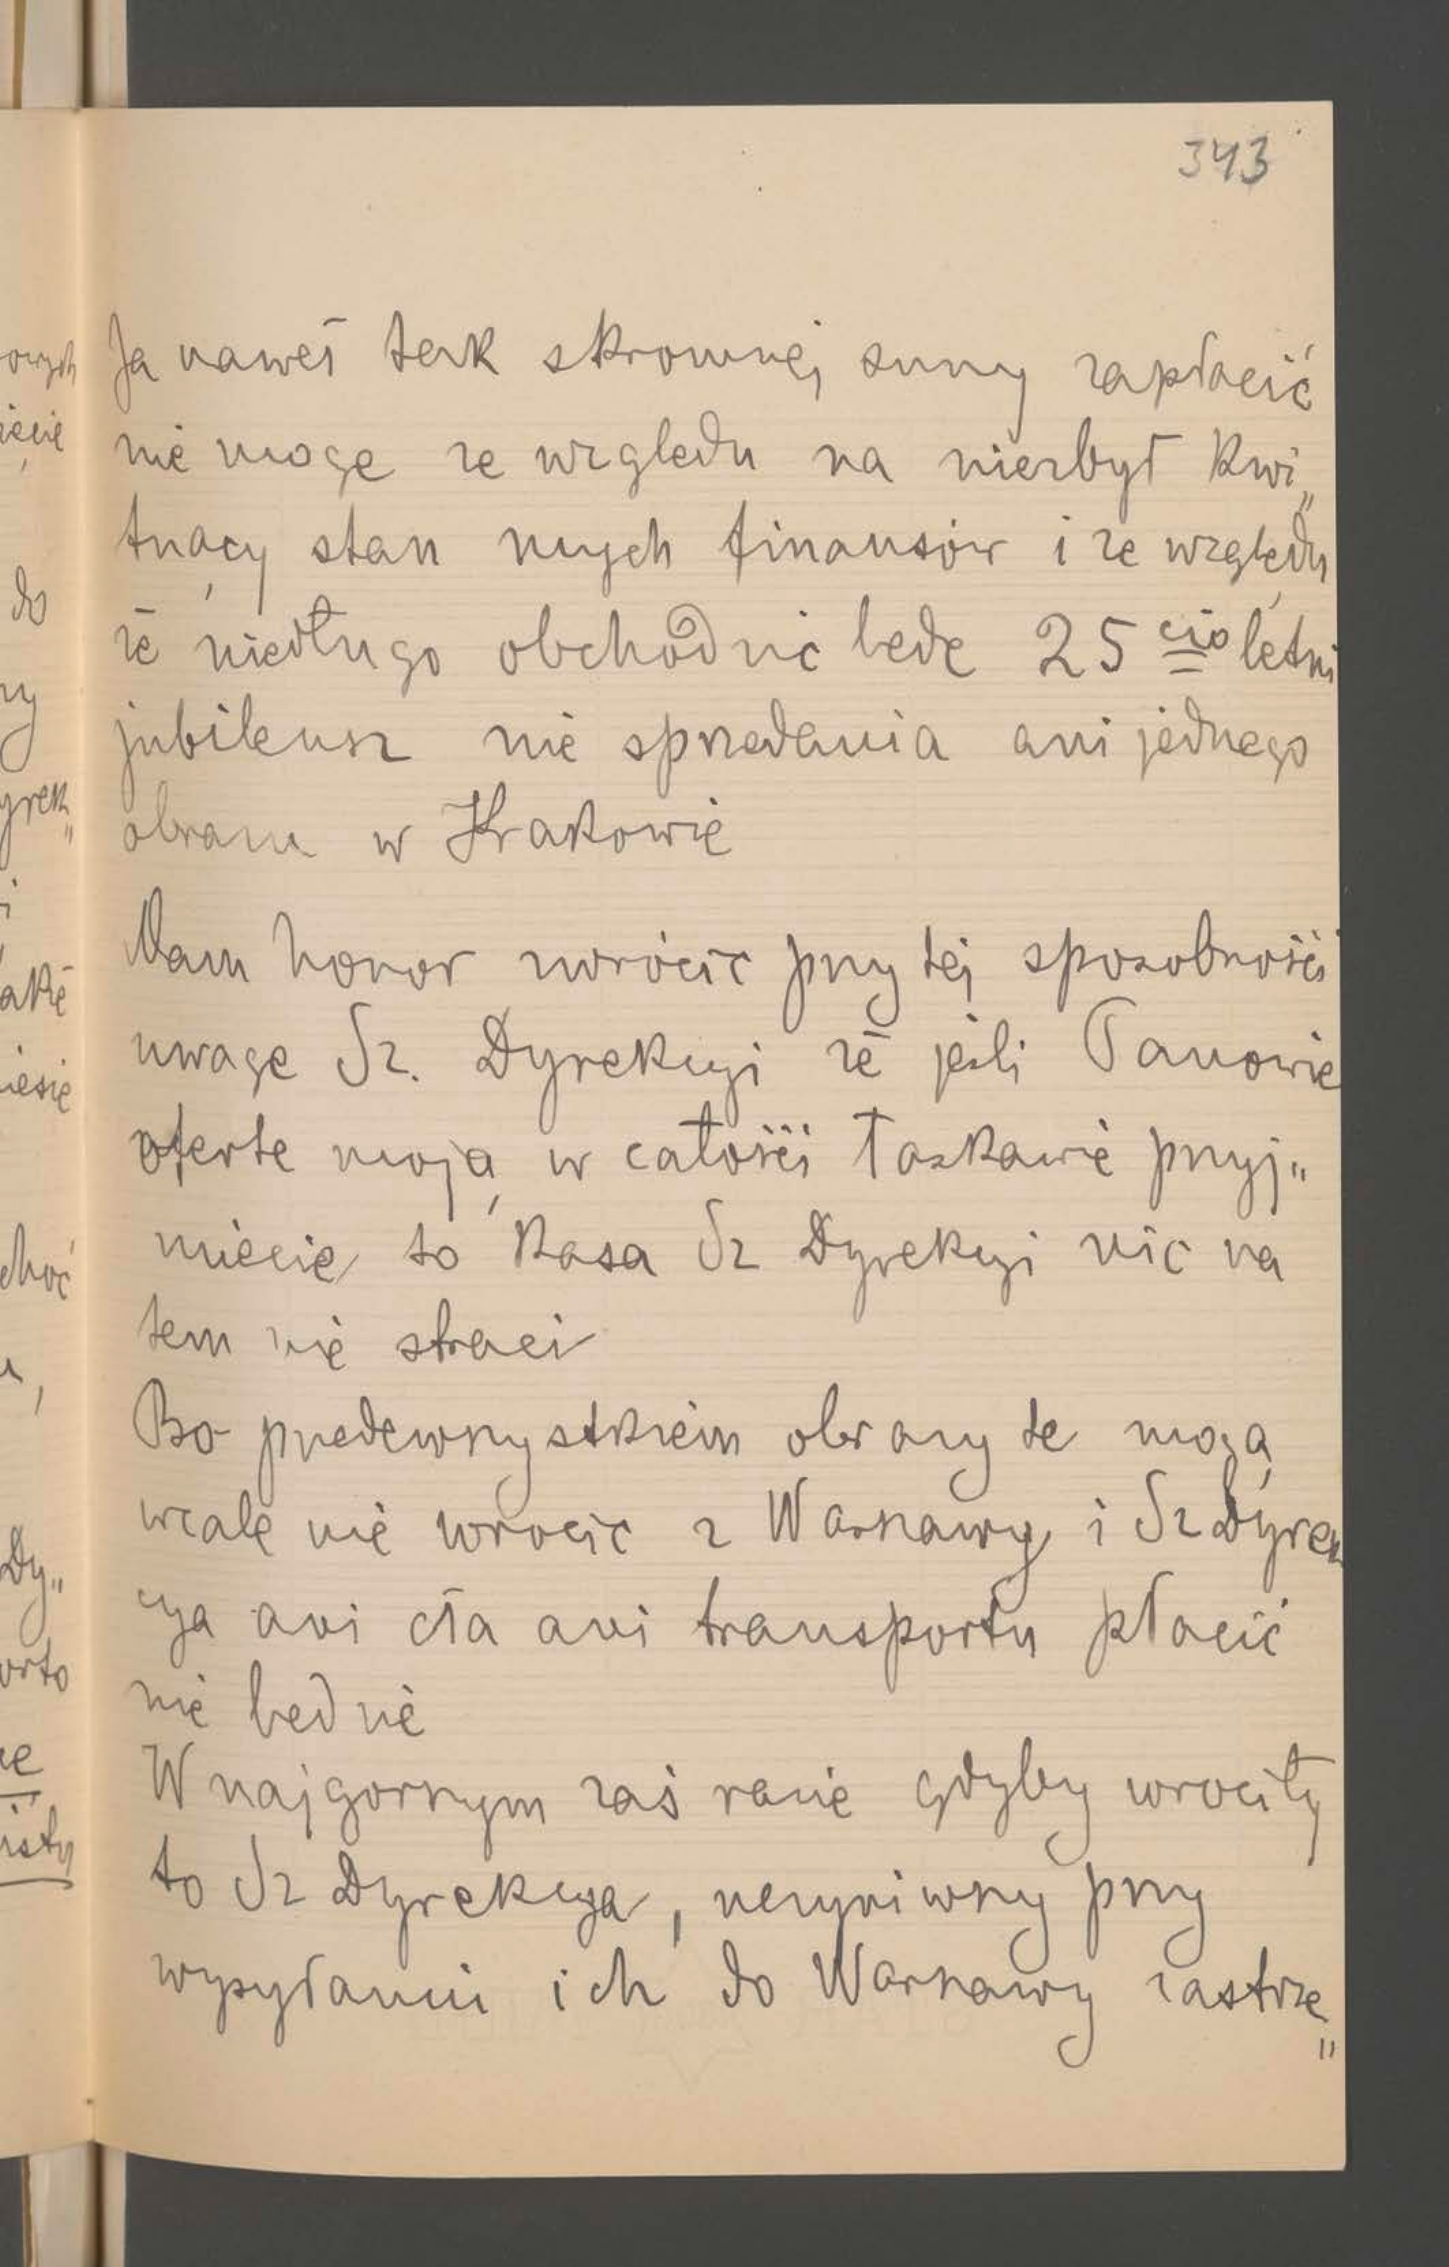 343
Ja nawet tak skromnej sumy zapłacić
nie moge ze wzgledu na niezbyt kwi„
tnący stan mych finansów i ze względu
że niedługo obchodzić bede 25 cio letni
jubileusz nie sprzedania ani jednego
obrazu w Krakowie
Mam honor zwrócić przy tej sposobności
uwage Sz. Dyrekcyi że jeśli Panowie
oferte moją w całości łaskawie przyj„
miecie to kasa Sz Dyrekcyi nic na
tem nie straci
Bo przedewszystkiem obrazy te mogą
wcale nie wrocić z Warszawy i Sz Dyrek
cya ani cła ani transportu płacić
nie bedzie
W najgorszym zaś razie gdyby wrociły
to Sz Dyrekcya, uczyniwszy przy
wysyłaniu ich do Warszawy zastrze
„